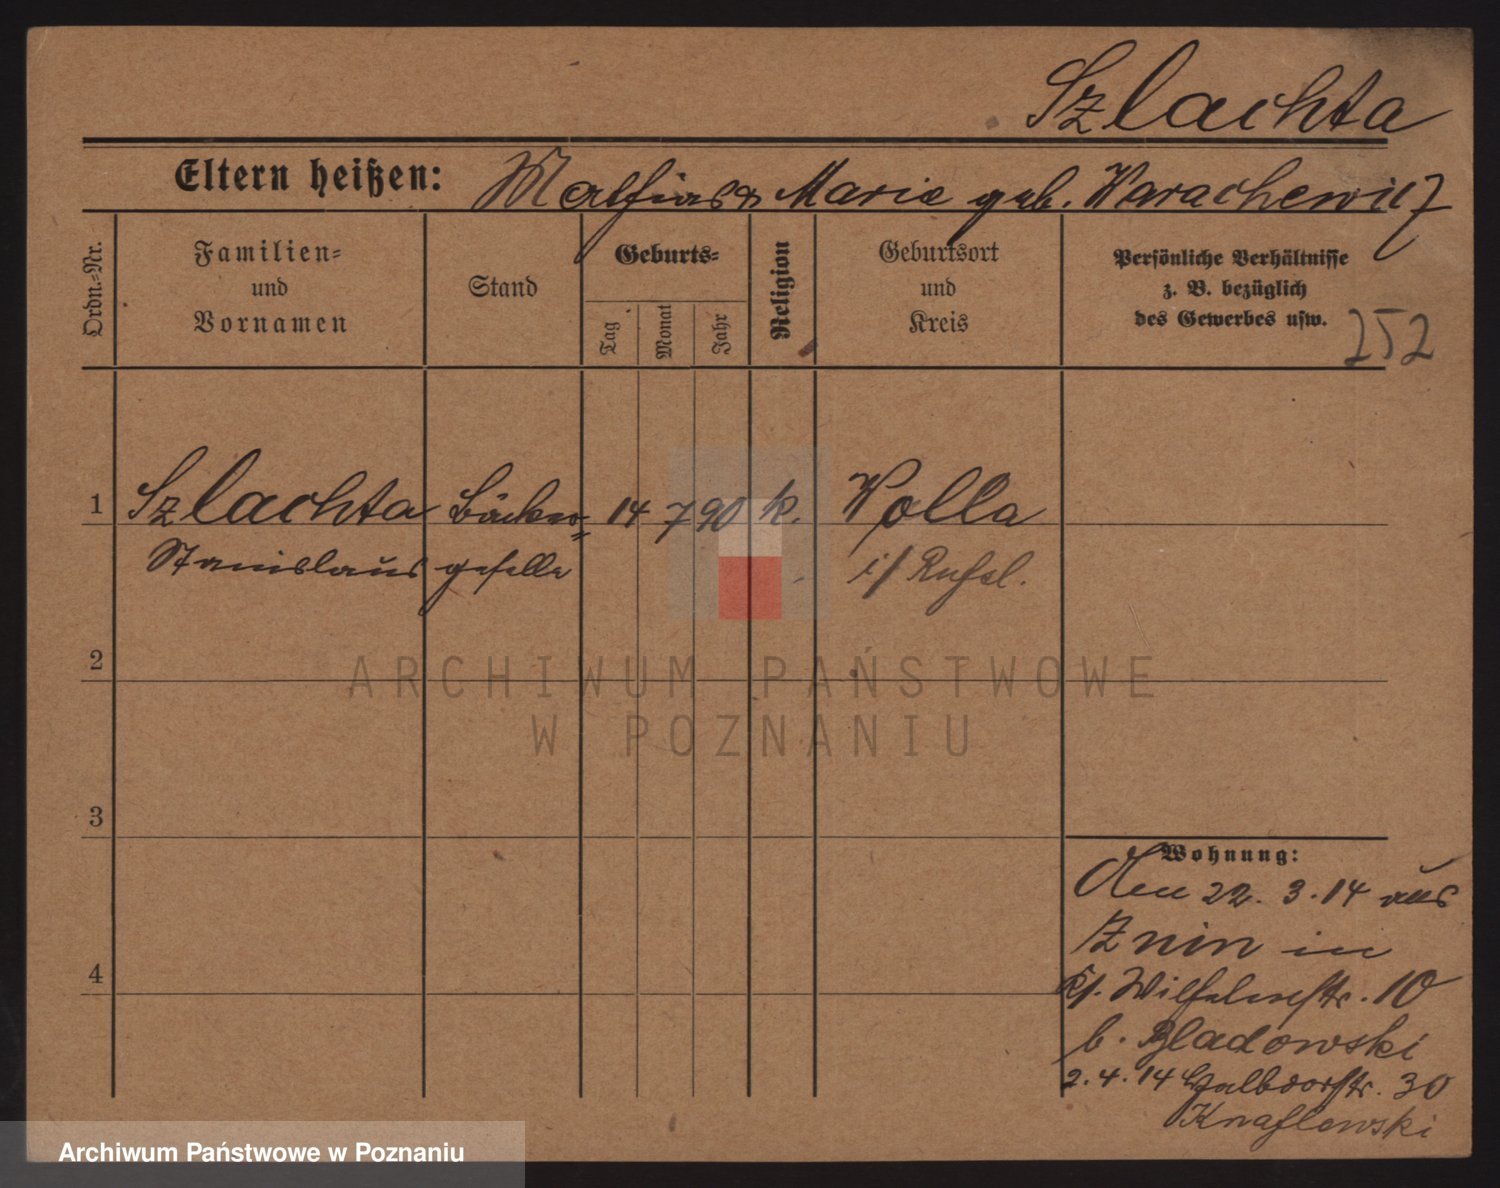 Szlachta
Eltern heißen: Mathias & Marie geb. Warachewicz
Ordn.=Nr.
Familien=
und
Vornamen
Stand
Geburts=
Tag
Monat
Jahr
Religion
Geburtsort
und
Kreis
Persönliche Verhältnisse
z. B. bezüglich
des Gewerbes usw.
252
1 Szlachta Bäcker= 14 7 90 k. Wolla
Stanislaus geselle i/ Russl.
2
ARCHIWUM PAŃSTWOWE
W POZNANIU
3
Wohnung:
Den 22. 3. 14 aus
Znin in
Wilhelmstr. 10
b. Gladowski
4
2. 4. 14 Halbdorfstr. 30
Knaflewski
Archiwum Państwowe w Poznaniu